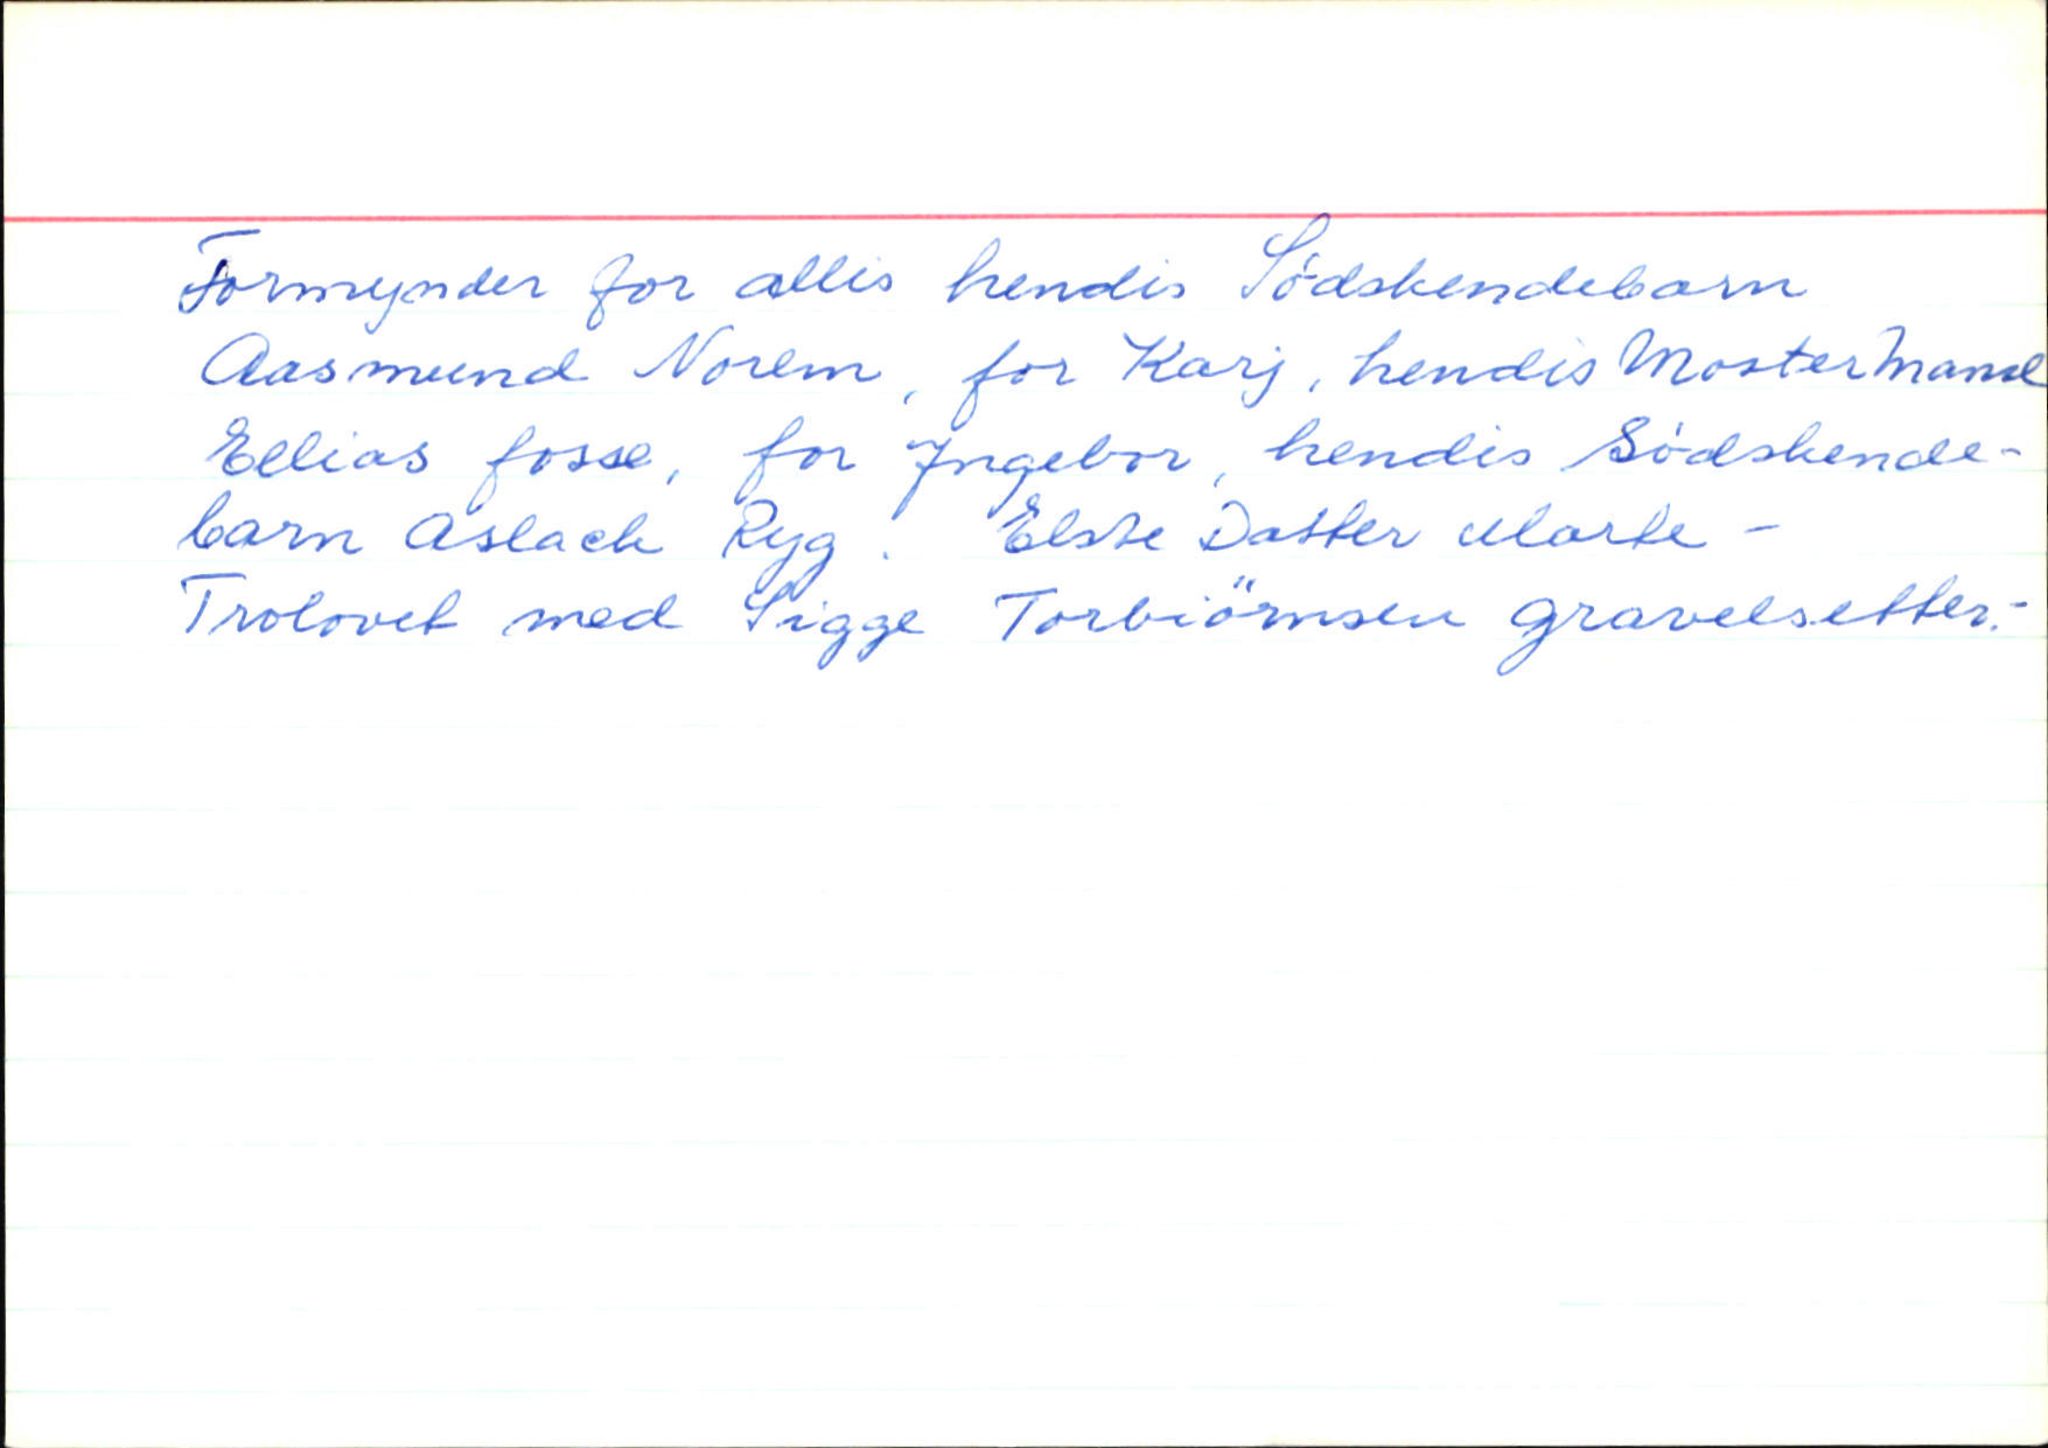 Formynder for allis hendis Södskendebarn
Aasmund Norem, for Karj, hendis Moster Mand
Ellias fosse, for Ingebor, hendis Södskende-
barn Aslach Ryg. Elste Datter Marte -
Trolovet med Sigge Torbiörnsen Gravelsetter.-